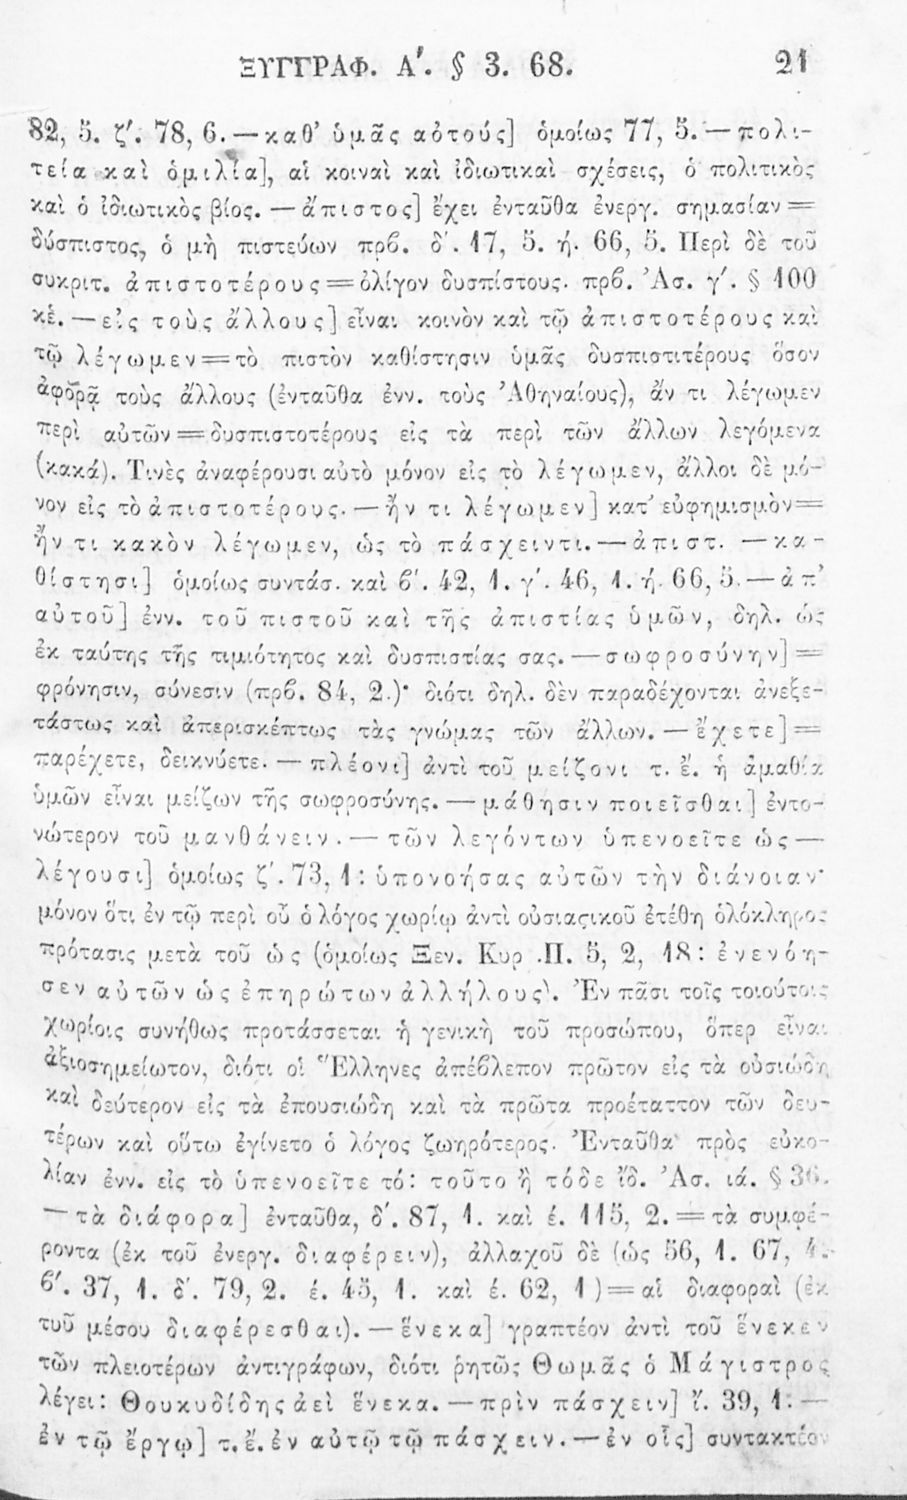 ΞΥΓΓΡΑΦ. Α΄. § 3. 68. 21
82, 5. ζ΄. 78, 6. — καθ’ ὑμᾶς αὐτούς] ὁμοίως 77, 5. — πολι-
τεία καὶ ὁμιλία], αἱ κοιναὶ καὶ ἰδιωτικαὶ σχέσεις, ὁ πολιτικὸς
καὶ ὁ ἰδιωτικὸς βίος. — ἄπιστος] ἔχει ἐνταῦθα ἐνεργ. σημασίαν =
δύσπιστος, ὁ μὴ πιστεύων πρβ. δ΄. 17, 5. ή. 66, 5. Περὶ δὲ τοῦ
συκριτ. ἀπιστοτέρους = ὀλίγον δυσπίστους. πρβ. Ἀσ. γ΄. § 100
κἑ. — εἰς τοὺς ἄλλους] εἶναι κοινὸν καὶ τῷ ἀπιστοτέρους καὶ
τῷ λέγωμεν = τὸ πιστὸν καθίστησιν ὑμᾶς δυσπιστιτέρους ὅσον
ἀφορᾷ τοὺς ἄλλους (ἐνταῦθα ἐνν. τοὺς Ἀθηναίους), ἄν τι λέγωμεν
περὶ αὐτῶν = δυσπιστοτέρους εἰς τὰ περὶ τῶν ἄλλων λεγόμενα
(κακά). Τινὲς ἀναφέρουσι αὐτὸ μόνον εἰς τὸ λέγωμεν, ἄλλοι δὲ μό-
νον εἰς τὸ ἀπιστοτέρους. — ἤν τι λέγωμεν] κατ’ εὐφημισμὸν =
ἤν τι κακὸν λέγωμεν, ὡς τὸ πάσχειν τι. — ἀπιστ. — κα-
θίστησι] ὁμοίως συντάσ. καὶ β΄. 42, 1. γ΄. 46, 1. ή. 66, 5. — ἀπ’
αὐτοῦ] ἐνν. τοῦ πιστοῦ καὶ τῆς ἀπιστίας ὑμῶν, δηλ. ὡς
ἐκ ταύτης τῆς τιμιότητος καὶ δυσπιστίας σας. — σωφροσύνην] =
φρόνησιν, σύνεσιν (πρβ. 84, 2.)· διότι δηλ. δὲν παραδέχονται ἀνεξε-
τάστως καὶ ἀπερισκέπτως τὰς γνώμας τῶν ἄλλων. — ἔχετε] =
παρέχετε, δεικνύετε. — πλέονι] ἀντὶ τοῦ μείζονι τ. ἔ. ἡ ἀμαθία
ὑμῶν εἶναι μείζων τῆς σωφροσύνης. — μάθησιν ποιεῖσθαι] ἐντο-
νώτερον τοῦ μανθάνειν. — τῶν λεγόντων ὑπενοεῖτε ὡς —
λέγουσι] ὁμοίως ζ΄. 73, 1: ὑπονοήσας αὐτῶν τὴν διάνοιαν·
μόνον ὅτι ἐν τῷ περὶ οὗ ὁ λόγος χωρίῳ ἀντὶ οὐσιαϛικοῦ ἐτέθη ὁλόκληρος
πρότασις μετὰ τοῦ ὡς (ὁμοίως Ξεν. Κυρ .Π. 5, 2, 18: ἐνενόη-
σεν αὐτῶν ὡς ἐπηρώτων ἀλλήλους). Ἐν πᾶσι τοῖς τοιούτοις
χωρίοις συνήθως προτάσσεται ἡ γενικὴ τοῦ προσώπου, ὅπερ εἶναι
ἀξιοσημείωτον, διότι οἱ Ἕλληνες ἀπέβλεπον πρῶτον εἰς τὰ οὐσιώδη
καὶ δεύτερον εἰς τὰ ἐπουσιώδη καὶ τὰ πρῶτα προέταττον τῶν δευ-
τέρων καὶ οὕτω ἐγίνετο ὁ λόγος ζωηρότερος. Ἐνταῦθα πρὸς εὐκο-
λίαν ἐνν. εἰς τὸ ὑπενοεῖτε τό: τοῦτο ἢ τόδε ἴδ. Ἀσ. ιά. § 36.
— τὰ διάφορα] ἐνταῦθα, δ΄. 87, 1. καὶ έ. 115, 2. = τὰ συμφέ-
ροντα (ἐκ τοῦ ἐνεργ. διαφέρειν), ἀλλαχοῦ δὲ (ὡς 56, 1. 67, 4.
β΄. 37, 1. δ΄. 79, 2. έ. 45, 1. καὶ έ. 62, 1) = αἱ διαφοραὶ (ἐκ
τοῦ μέσου διαφέρεσθαι). — ἕνεκα] γραπτέον ἀντὶ τοῦ ἕνεκεν
τῶν πλειοτέρων ἀντιγράφων, διότι ῥητῶς Θωμᾶς ὁ Μάγιστρος
λέγει: Θουκυδίδης ἀεὶ ἕνεκα. — πρὶν πάσχειν] ἴ. 39, 1: —
ἐν τῷ ἔργῳ] τ. ἔ. ἐν αὐτῷ τῷ πάσχειν. — ἐν οἷς] συντακτέον